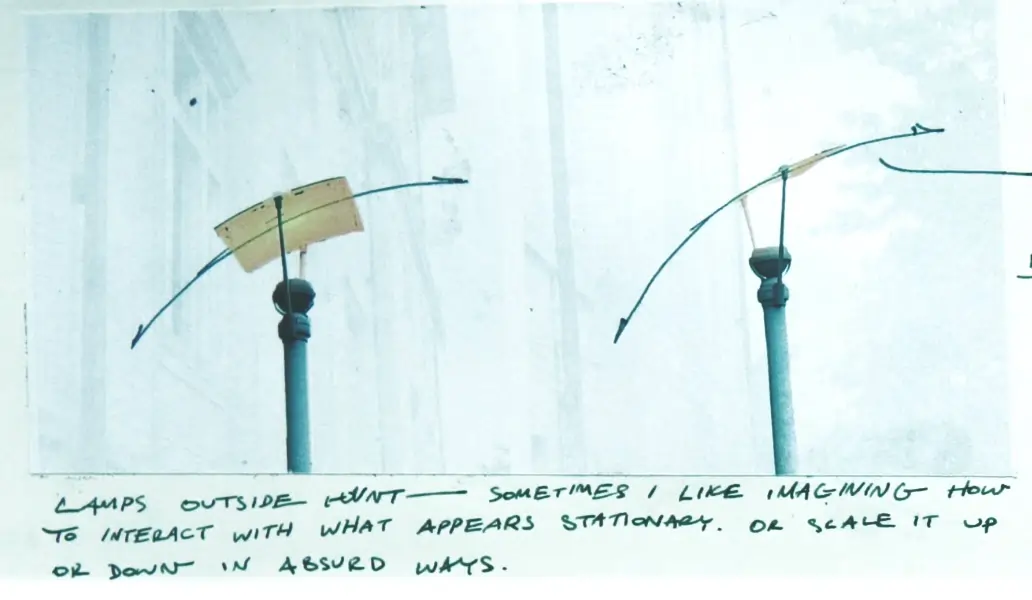 LAMPS OUTSIDE HUNT — SOMETIMES I LIKE IMAGINING HOW
TO INTERACT WITH WHAT APPEARS STATIONARY. OR SCALE IT UP
OR DOWN IN ABSURD WAYS.